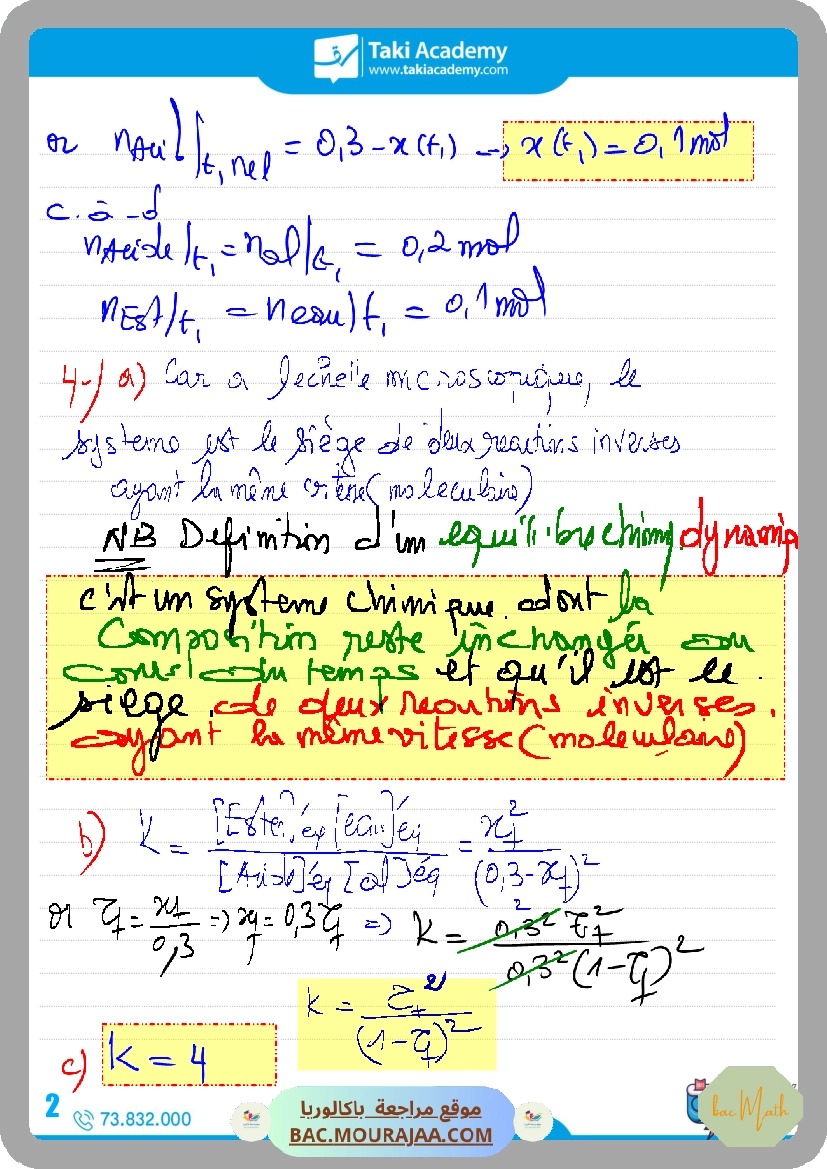 Taki Academy
www.takiacademy.com
or n_Aci)_t₁, = 0,3 - x(t₁) → x(t₁) = 0,1 mol
c. à -d
n_Acide/t₁ = n_ol/t₁ = 0,2 mol
n_Est/t₁ = n eau)t₁ = 0,1 mol
4-/ a) Car a l'echelle microscopique, le
systeme est le siège de deux reactions inverses
ayant la même (moleculaire)
NB Definition d'un equilibre chimiq dynamiq
c'est un systeme chimique dont la
Composition reste inchangée au
cours du temps et qu'il est le
siège de deux reactions inverses.
ayant la même vitesse (moleculaire)
b) K = [Ester]éq [eau]éq / [Acide]éq [ol]éq = x_f² / (0,3 - x_f)²
or τ_f = x_f / 0,3 => x_f = 0,3 τ_f => K = 0,3² τ_f² / 0,3² (1 - τ_f)²
K = τ_f² / (1 - τ_f)²
c) K = 4
2
73.832.000
موقع مراجعة باكالوريا
BAC.MOURAJAA.COM
bac Math